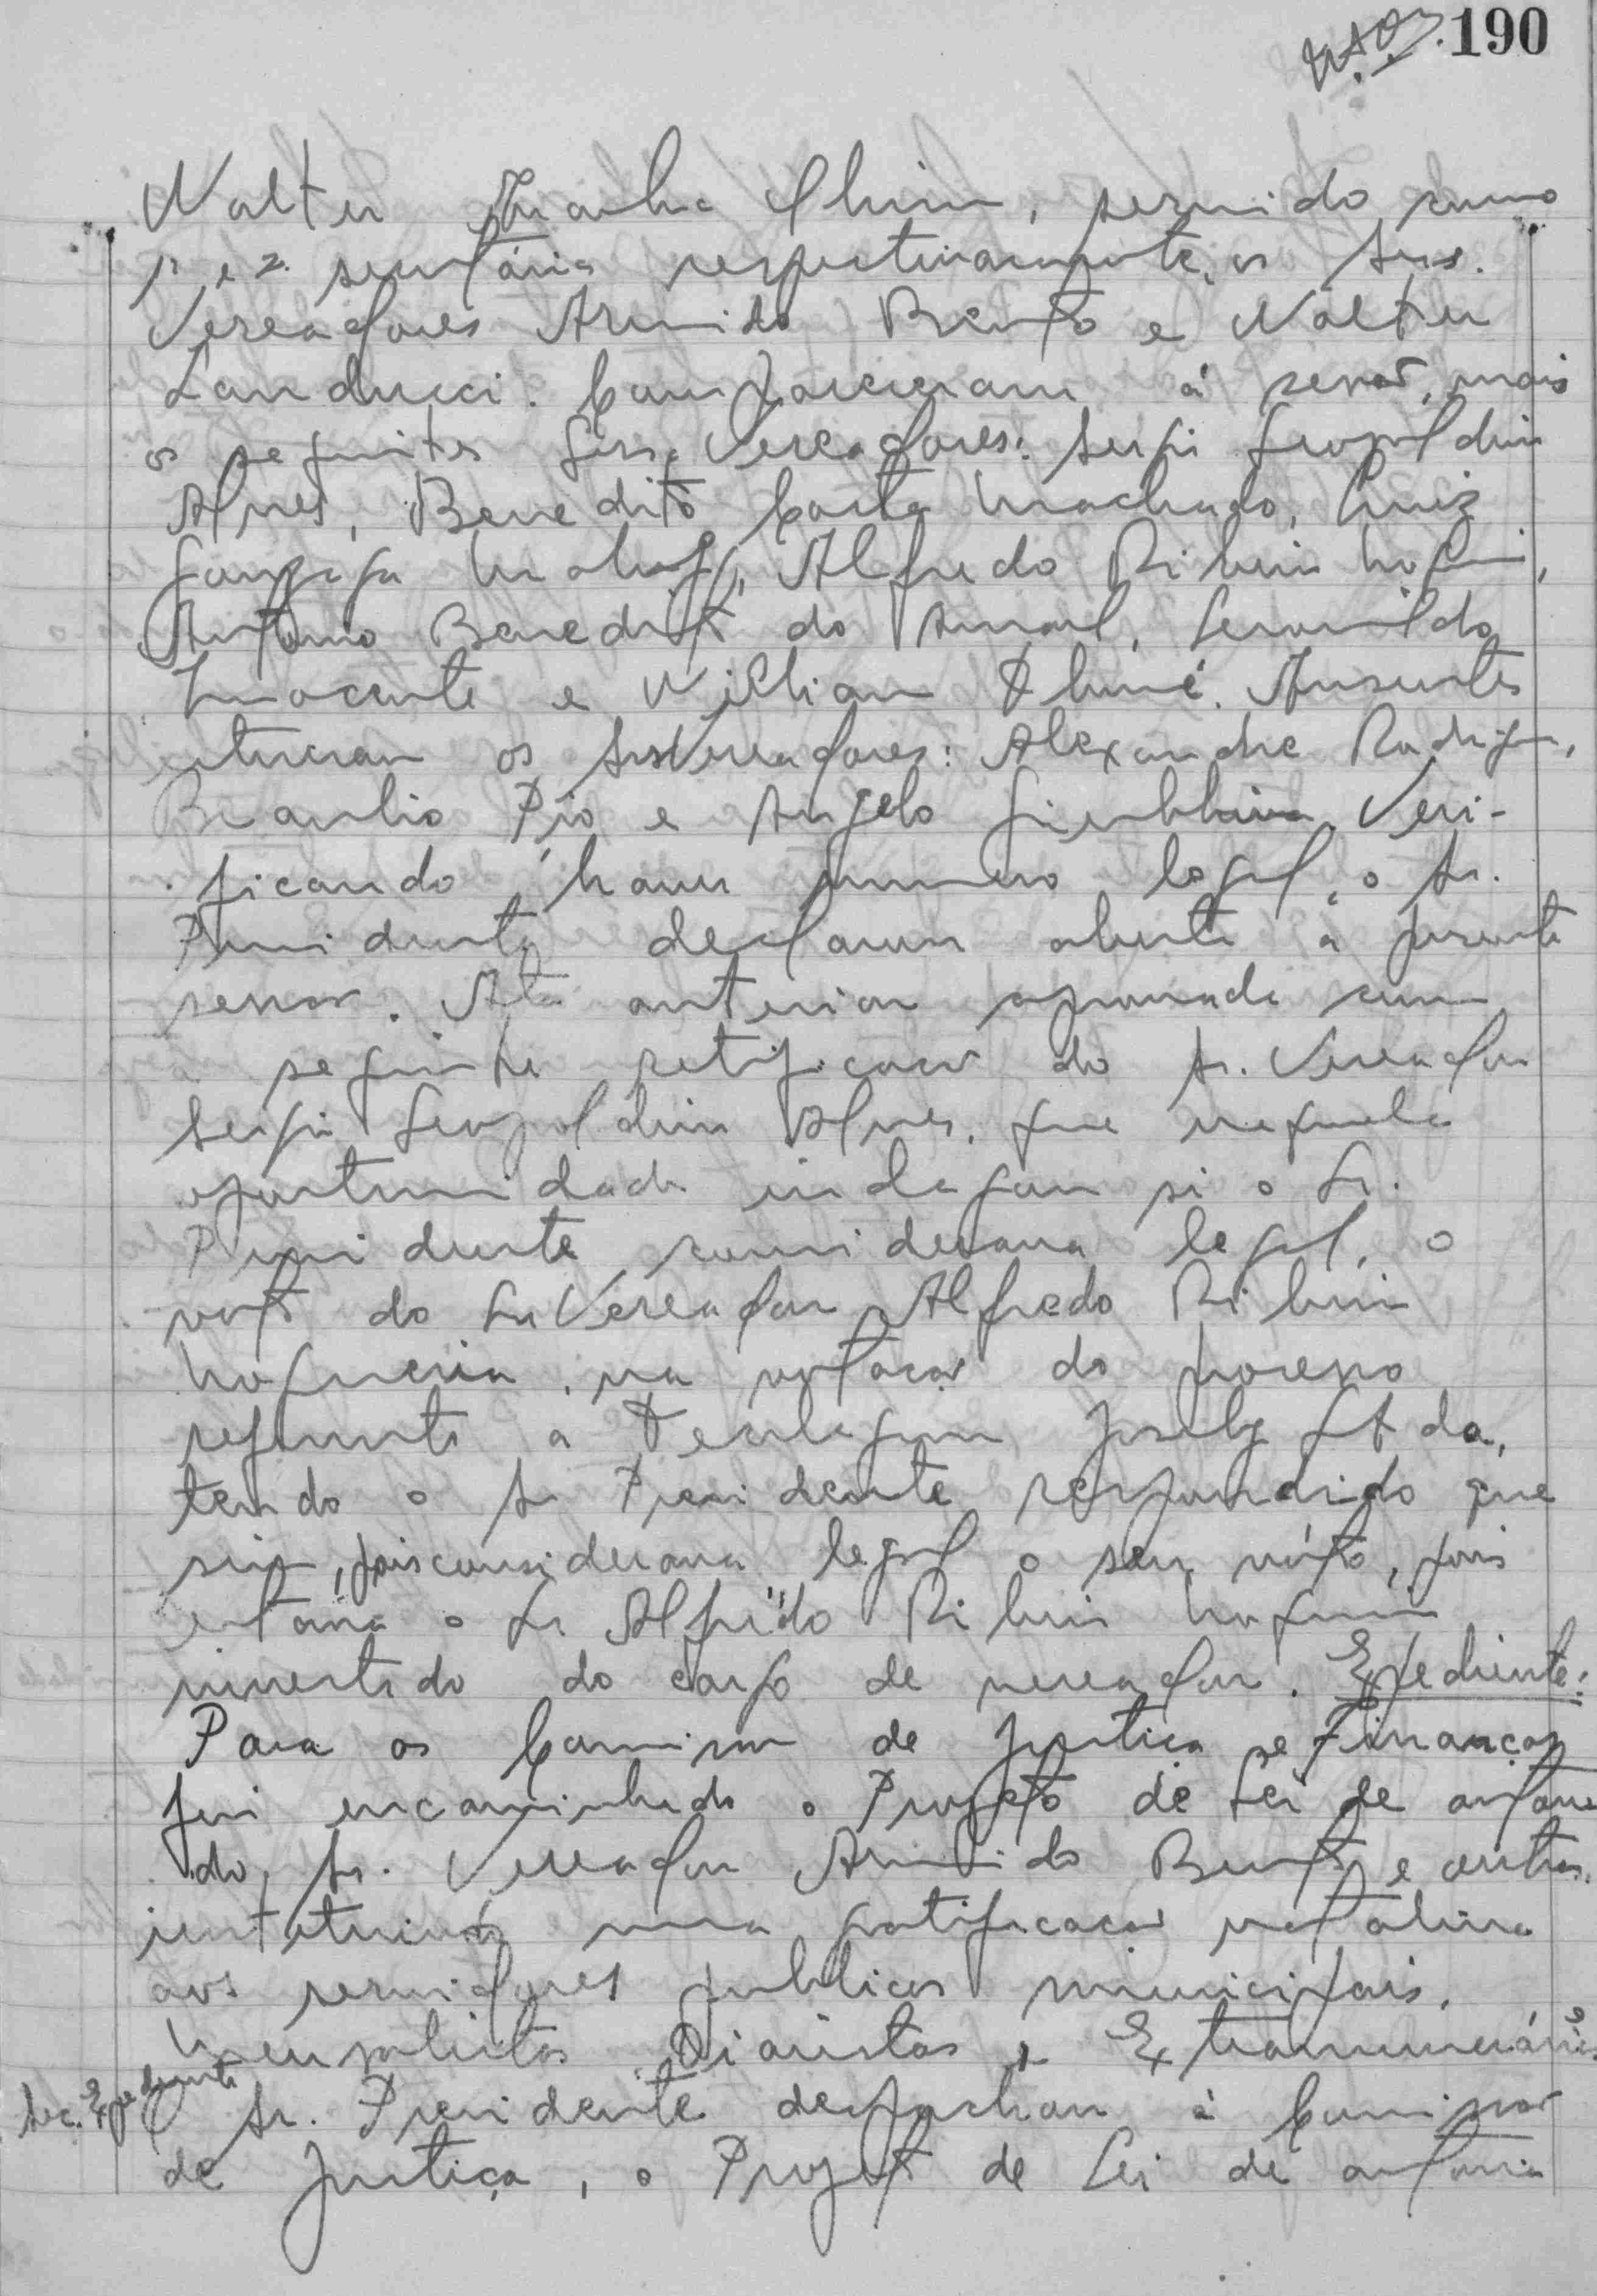 190
Walter Chim, servindo como
1º e 2º secretários respectivamente, os Srs.
Vereadores Armindo Bento e Walter
Landucci. Compareceram à sessão, mais
os seguintes Srs. Vereadores: Sergio Leopoldino
Alves, Benedito Costa Machado, Luiz
Gonzaga Maluf, Alfredo Ribeiro Nogueira,
Antonio Benedito do Amaral,
Inocente e Willian. Ausentes
estiveram os Srs Vereadores: Alexandre Rodrigues,
Braulio Pio e Angelo. Veri-
ficando haver numero legal, o Sr.
Presidente declarou aberta a presente
sessão. Ata anterior aprovada com
a seguinte retificação do Sr. Vereador
Sergio Leopoldino Alves, que naquela
oportunidade indagou si o Sr.
Presidente considerava legal, o
voto do Sr Vereador Alfredo Ribeiro
Nogueira, na votação do processo
referente a Tecelagem Ltda,
tendo o Sr Presidente respondido que
sim, pois considerava legal o seu vóto, pois
estava o Sr Alfredo Ribeiro Nogueira
investido do cargo de vereador. Expediente:
Para as Comissões de Justiça e Finanças
foi encaminhado o Projeto de Lei de autoria
do Sr. Vereador Armindo Bento e outros,
instituindo uma gratificação natalina
aos servidores publicos municipais,
Mensalistas, Diaristas e Extranumerários
Sec. Expediente
Sr. Presidente despachou à Comissão
de Justiça, o Projeto de Lei de autoria